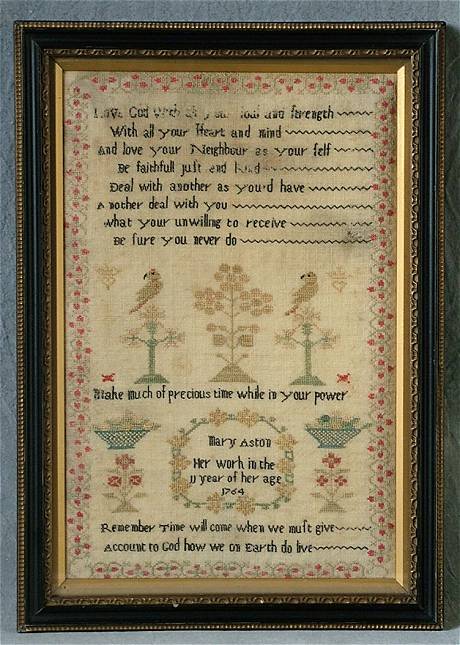 Love God With all your soul and ſtrength
With all your Heart and mind
And love your Neighbour as your ſelf
Be faithfull juſt and kind
Deal with another as you'd have
Another deal with you
What your unwilling to receive
Be ſure you never do
Make much of precious time while in your power
Mary Aston
Her work in the
11 year of her age
1764
Remember Time will come when we muſt give
Account to God how we on Earth do live